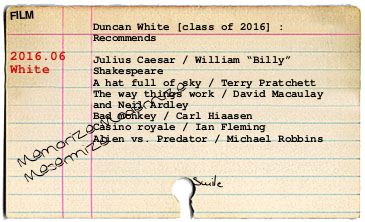 FILM
Duncan White [class of 2016] :
Recommends
2016.06
White
Julius Caesar / William “Billy”
Shakespeare
A hat full of sky / Terry Pratchett
The way things work / David Macaulay
and Neil Ardley
Bad monkey / Carl Hiaasen
Casino royale / Ian Fleming
Alien vs. Predator / Michael Robbins
Memorize
Mesmerize
Smile